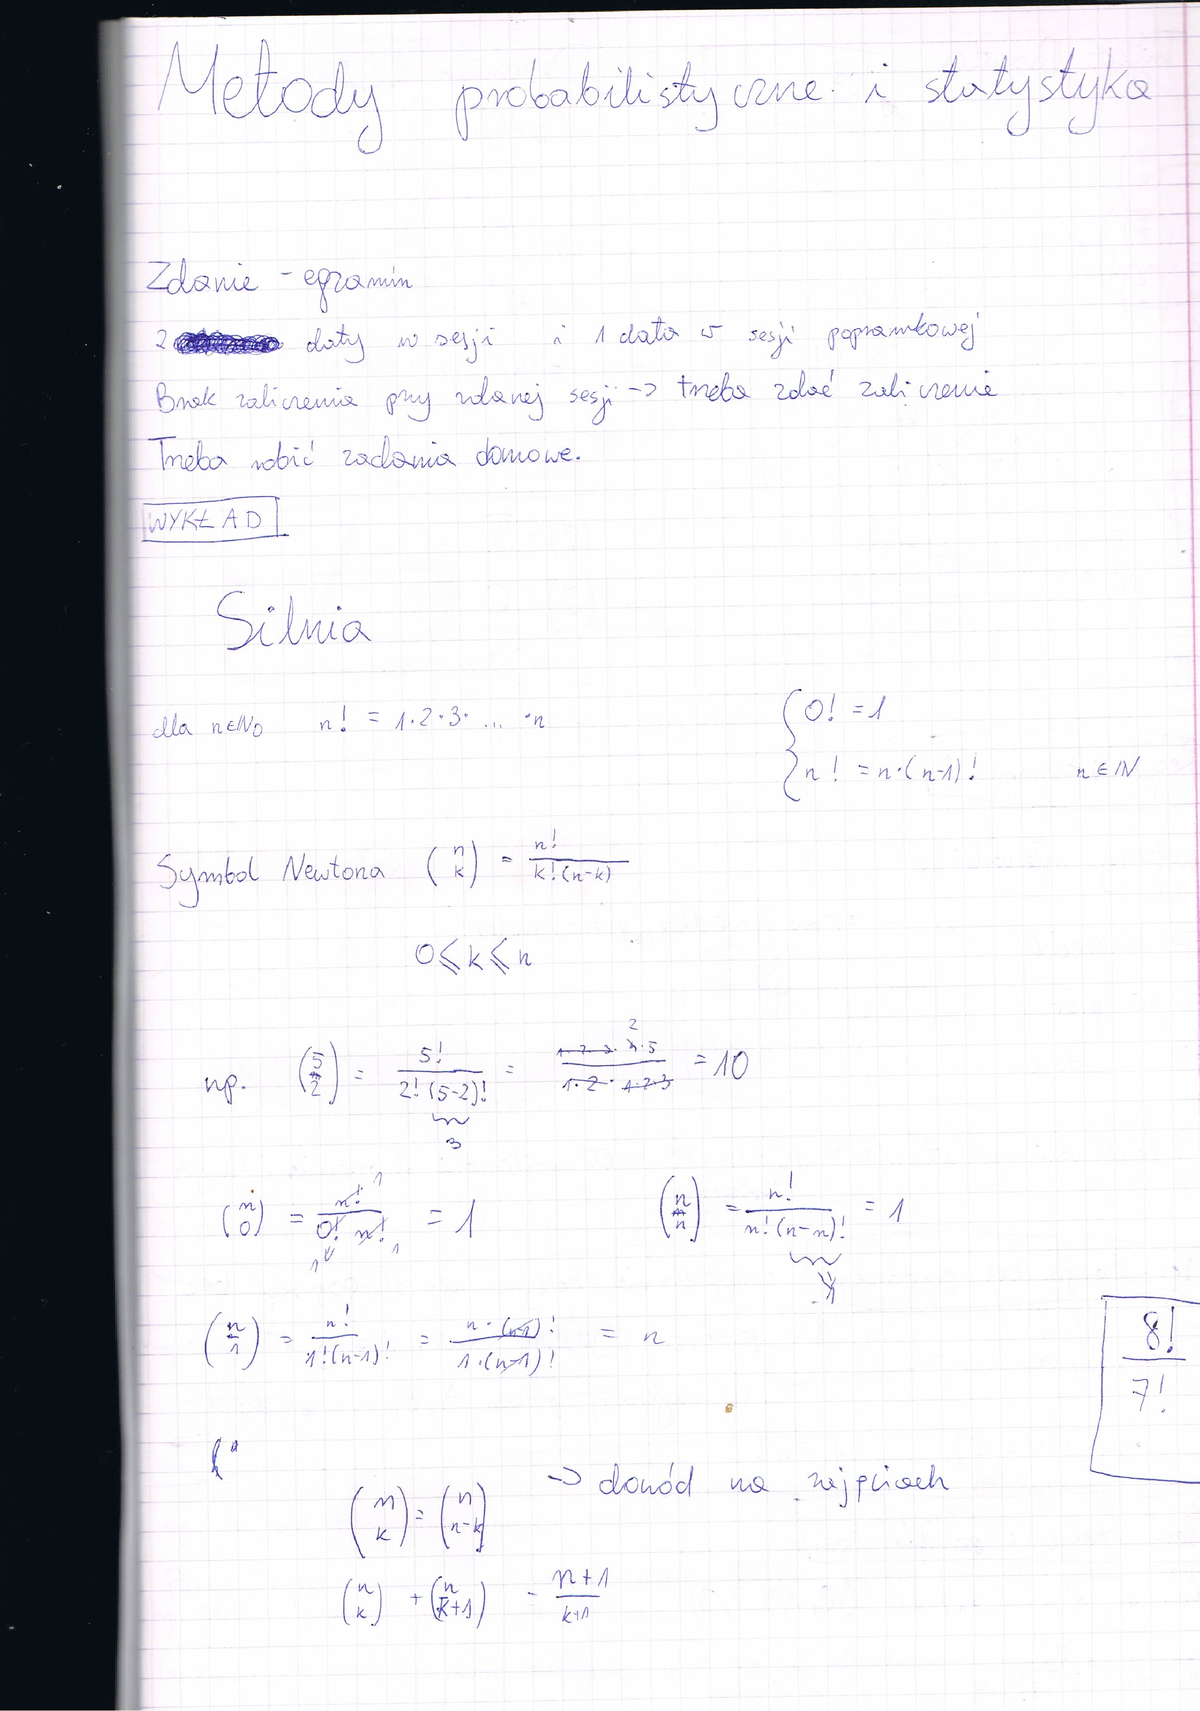 Metody probabilistyczne i statystyka
Zdanie - egzamin
2 daty w sesji i 1 data w sesji poprawkowej
Brak zaliczenia przy zdanej sesji -> trzeba zdać zaliczenie
Trzeba robić zadania domowe.
WYKŁAD
Silnia
dla n∈ℕ₀ n! = 1·2·3· ... ·n { 0! = 1
n! = n·(n-1)! n∈ℕ
Symbol Newtona (n k) = n! / k!(n-k)
0 ⩽ k ⩽ n
np. (5 2) = 5! / 2!(5-2)! = 1·2·3·4·5 / 1·2·1·2·3 = 10
2
3
(n 0) = n! / 0! n! = 1 (n n) = n! / n!(n-n)! = 1
1 1 1 1
(n 1) = n! / 1!(n-1)! = n·(n-1)! / 1·(n-1)! = n
8! / 7!
(n k) = (n n-k) -> dowód na zajęciach
(n k) + (n k+1) = n+1 / k+1